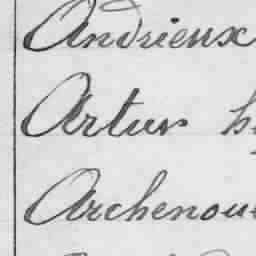 Andrieux
Artur
Archenou